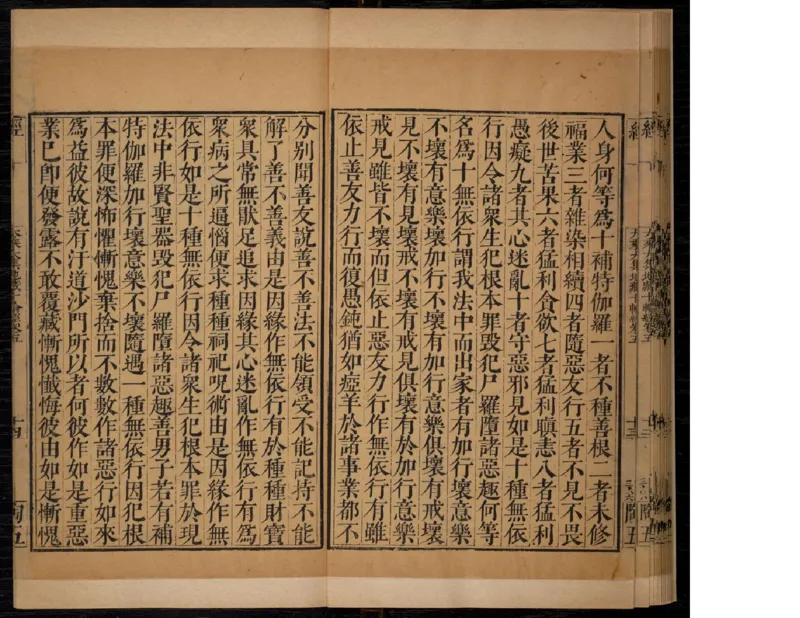 人身何等爲十補特伽羅一者不種善根二者未修
福業三者雜染相續四者隨惡友行五者不見不畏
後世苦果六者猛利貪欲七者猛利瞋恚八者猛利
愚癡九者其心迷亂十者守惡邪見如是十種無依
行因令諸衆生犯根本罪毀犯尸羅墮諸惡趣何等
名爲十無依行謂我法中而出家者有加行壞意樂
不壞有意樂壞加行不壞有加行意樂俱壞有戒壞
見不壞有見壞戒不壞有戒見俱壞有於加行意樂
戒見雖皆不壞而但依止惡友力行作無依行有雖
依止善友力行而復愚鈍猶如瘂羊於諸事業都不
分別聞善友說善不善法不能領受不能記持不能
解了善不善義由是因緣作無依行有於種種財寶
衆具常無猒足追求因緣其心迷亂作無依行有爲
衆病之所逼惱便求種種祠祀呪術由是因緣作無
依行如是十種無依行因令諸衆生犯根本罪於現
法中非賢聖器毀犯尸羅墮諸惡趣善男子若有補
特伽羅加行壞意樂不壞隨遇一種無依行因犯根
本罪便深怖懼慚愧棄捨而不數數作諸惡行如來
爲益彼故說有汙道沙門所以者何彼作如是重惡
業已卽便發露不敢覆藏慚愧懺悔彼由如是慚愧
經 十四